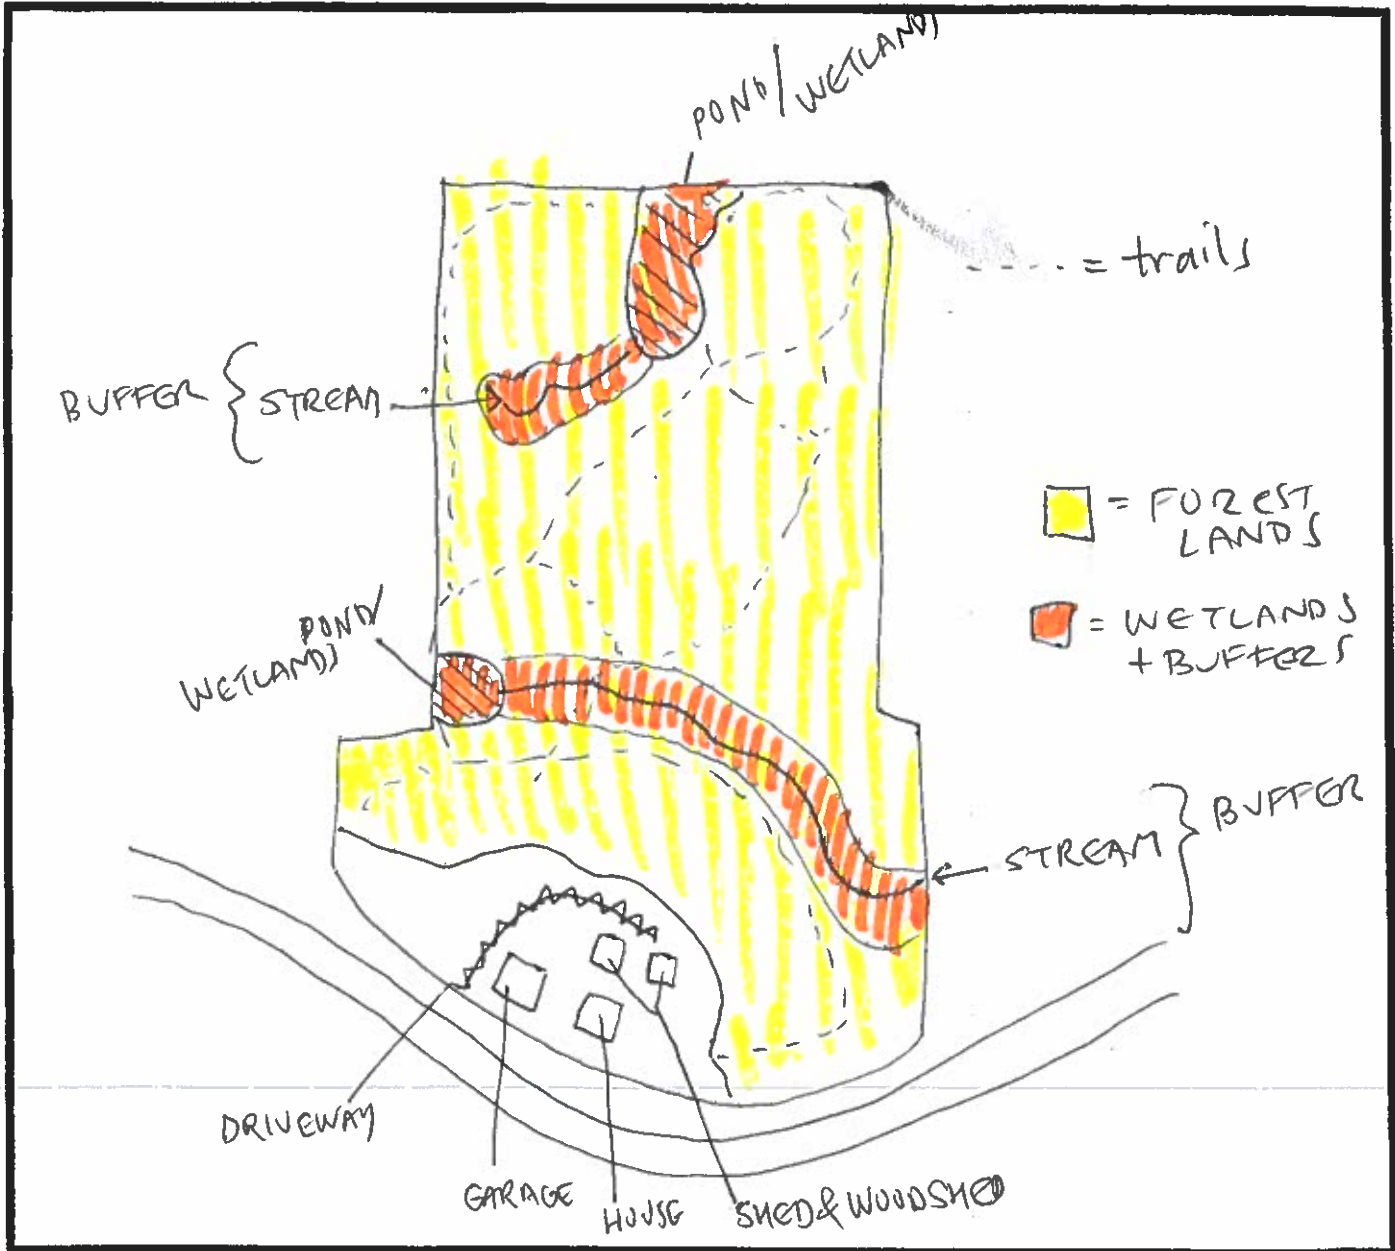 POND/WETLANDS
---- = trails
BUFFER { STREAM
= FOREST
LANDS
= WETLANDS
+ BUFFERS
POND/
WETLANDS
STREAM } BUFFER
DRIVEWAY
GARAGE
HOUSE
SHED & WOODSHED